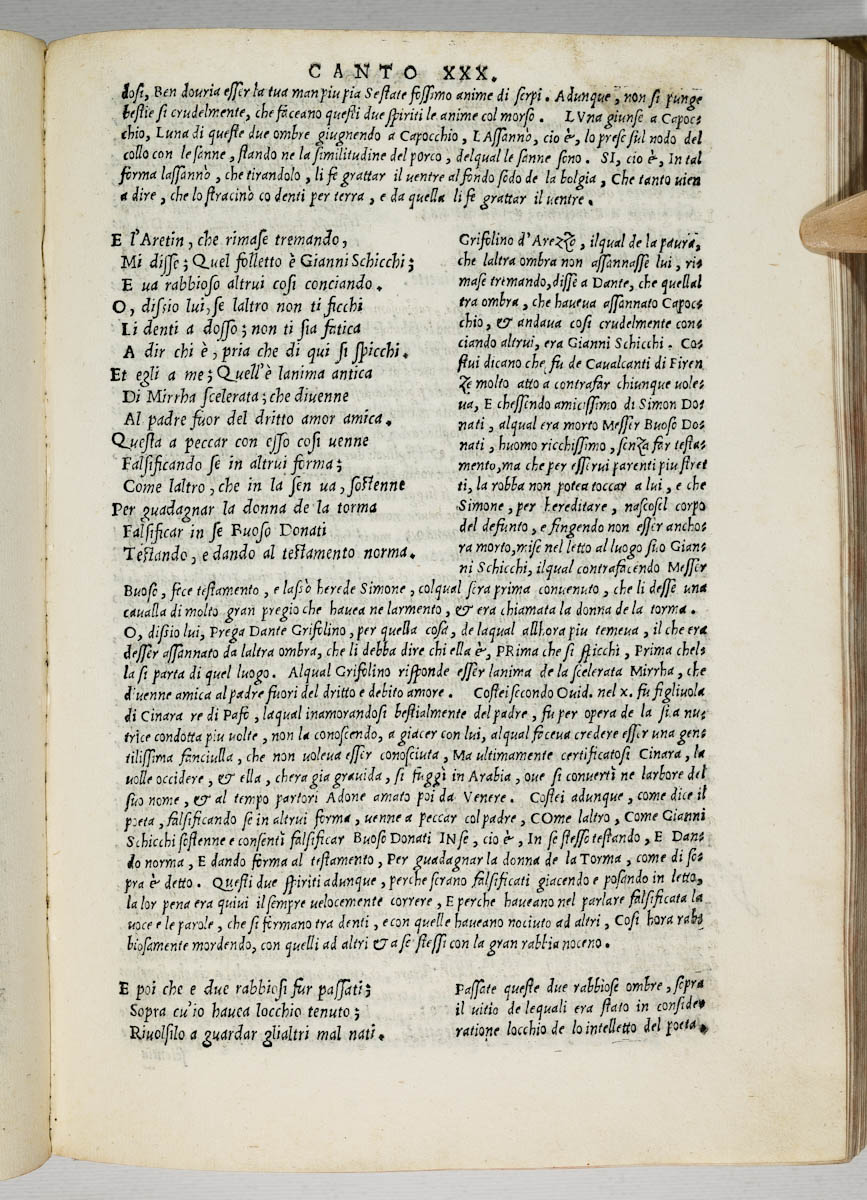 CANTO XXX.
dosi, Ben douria esser la tua man piu pia Se state fossimo anime di serpi. Adunque, non si punge
bestie si crudelmente, che faceano questi due spiriti le anime col morso. LVna giunse a Capoc-
chio, Luna di queste due ombre giugnendo a Capocchio, LAssannò, cio è, lo prese sul nodo del
collo con le sanne, stando ne la similitudine del porco, delqual le sanne sono. SI, cio è, In tal
forma lassannò, che tirandolo, li fe grattar il uentre al fondo sodo de la bolgia, Che tanto uien
a dire, che lo stracinò co denti per terra, e da quella li fe grattar il uentre.
E l'Aretin, che rimase tremando,
Mi disse; Quel folletto è Gianni Schicchi;
E ua rabbioso altrui cosi conciando.
O, dissio lui, se laltro non ti ficchi
Li denti a dosso; non ti sia fatica
A dir chi è, pria che di qui si spicchi.
Et egli a me; Quell'è lanima antica
Di Mirrha scelerata; che diuenne
Al padre fuor del dritto amor amica.
Questa a peccar con esso cosi uenne
Falsificando se in altrui forma;
Come laltro, che in la sen ua, sostenne
Per guadagnar la donna de la torma
Falsificar in se Buoso Donati
Testando, e dando al testamento norma.
Grifolino d'Arezzo, ilqual de la paura,
che laltra ombra non assannasse lui, ri-
mase tremando, disse a Dante, che quellal
tra ombra, che haueua assannato Capoc-
chio, & andaua cosi crudelmente con-
ciando altrui, era Gianni Schicchi. Co-
stui dicano che fu de Caualcanti di Firen
ze molto atto a contrafar chiunque uole-
ua, E chessendo amicissimo di Simon Do-
nati, alqual era morto Messer Buoso Do-
nati, huomo ricchissimo, senza far testa-
mento, ma che per esserui parenti piu stret
ti, la robba non potea toccar a lui, e che
Simone, per hereditare, nascosel corpo
del defunto, e fingendo non esser ancho-
ra morto, mise nel letto al luogo suo Gian-
ni Schicchi, ilqual contrafacendo Messer
Buoso, fece testamento, e lassò herede Simone, colqual sera prima conuenuto, che li desse una
caualla di molto gran pregio che hauea ne larmento, & era chiamata la donna de la torma.
O, dissio lui, Prega Dante Grifolino, per quella cosa, de laqual allhora piu temeua, il che era
desser assannato da laltra ombra, che li debba dire chi ella è, PRima che si spicchi, Prima chel-
la si parta di quel luogo. Alqual Grifolino risponde esser lanima de la scelerata Mirrha, che
diuenne amica al padre fuori del dritto e debito amore. Costei secondo Ouid. nel x. fu figliuola
di Cinara re di Pafo, laqual inamorandosi bestialmente del padre, fu per opera de la sua nu-
trice condotta piu uolte, non la conoscendo, a giacer con lui, alqual faceua credere esser una gen-
tilissima fanciulla, che non uoleua esser conosciuta, Ma ultimamente certificatosi Cinara, la
uolle occidere, & ella, chera gia grauida, si fuggì in Arabia, oue si conuertì ne larbore del
suo nome, & al tempo partorì Adone amato poi da Venere. Costei adunque, come dice il
poeta, falsificando se in altrui forma, uenne a peccar col padre, COme laltro, Come Gianni
Schicchi sostenne e consentì falsificar Buoso Donati INse, cio è, In se stesso testando, E Dan-
do norma, E dando forma al testamento, Per guadagnar la donna de la Torma, come di so-
pra è detto. Questi due spiriti adunque, perche serano falsificati giacendo e posando in letto,
la lor pena era quiui il sempre uelocemente correre, E perche haueano nel parlare falsificata la
uoce e le parole, che si formano tra denti, e con quelle haueano nociuto ad altri, Cosi hora rab-
biosamente mordendo, con quelli ad altri & a se stessi con la gran rabbia noceno.
E poi che e due rabbiosi fur passati;
Sopra cu'io hauea locchio tenuto;
Riuolsilo a guardar glialtri mal nati.
Passate queste due rabbiose ombre, sopra
il uitio de lequali era stato in conside-
ratione locchio de lo intelletto del poeta,